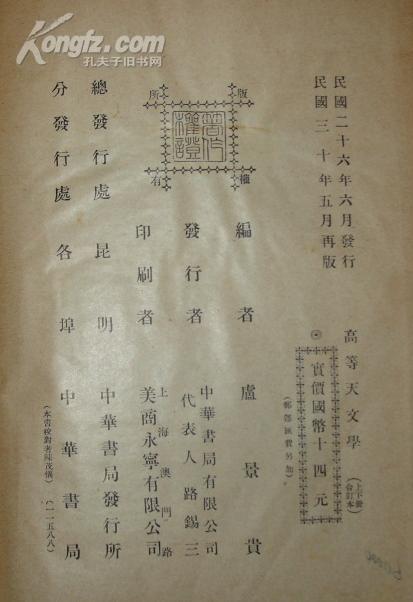 民國二十六年六月發行
民國三十年五月再版
高等天文學(上下冊合訂本)
實價國幣十四元
(郵運匯費另加)
編者 盧景貴
發行者 中華書局有限公司
代表人 路錫三
印刷者 上海澳門路
美商永寧有限公司
總發行處 昆明 中華書局發行所
分發行處 各埠 中華書局
(本書校對者陳茂儀)(一一五八八)
版權所有
著作權證
Kongfz.com
孔夫子旧书网